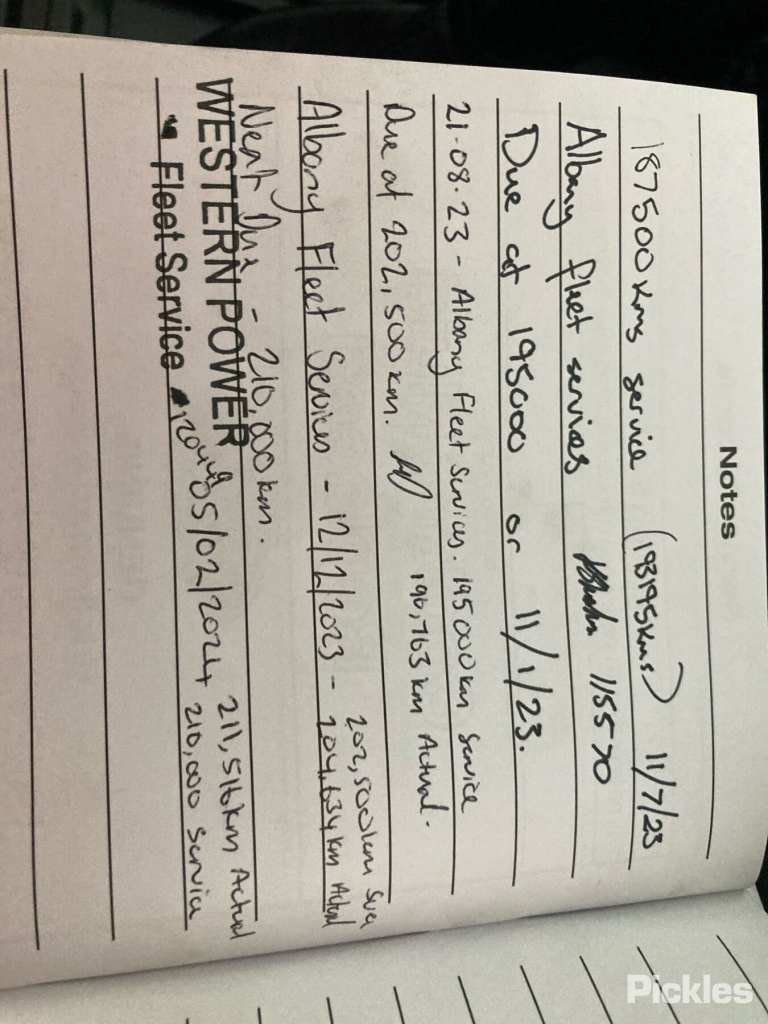 Notes
187500kms service (193195kms) 11/7/23
Albany fleet services 115570
Due at 195000 or 11/1/23.
21-08.23 - Albany Fleet Services. 195000km Service
Due at 202,500km. 196,763 km Actual.
202,500km Svc
Albany Fleet Services - 12/12/2023 - 204,634km Actual
Next Due - 210,000km.
WESTERN POWER
211,516km Actual
Fleet Service 05/02/2024 210,000 Service
Pickles